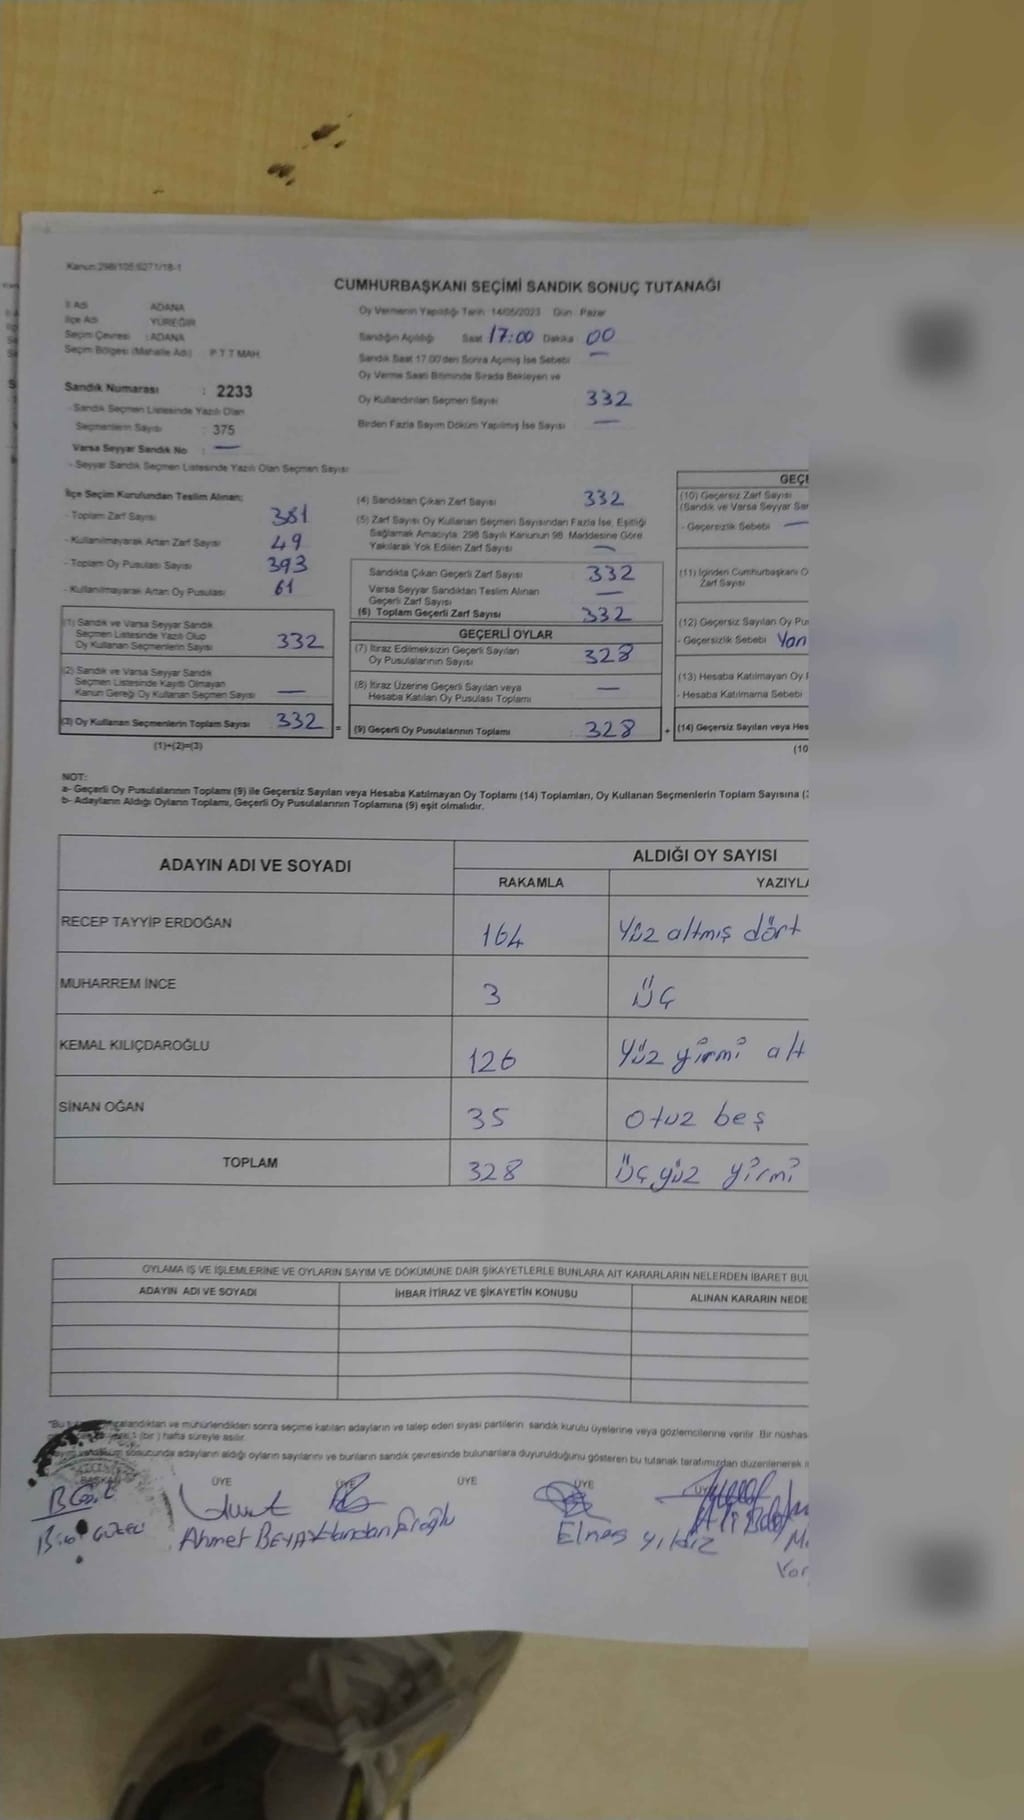 Kanun:298/105;6271/18-1
CUMHURBAŞKANI SEÇİMİ SANDIK SONUÇ TUTANAĞI
İl Adı ADANA
İlçe Adı YÜREĞİR
Seçim Çevresi : ADANA
Seçim Bölgesi (Mahalle Adı) P T T MAH.
Sandık Numarası : 2233
- Sandık Seçmen Listesinde Yazılı Olan
Seçmenlerin Sayısı : 375
Varsa Seyyar Sandık No : —
- Seyyar Sandık Seçmen Listesinde Yazılı Olan Seçmen Sayısı
Oy Vermenin Yapıldığı Tarih : 14/05/2023 Gün : Pazar
Sandığın Açıldığı Saat 17:00 Dakika 00
Sandık Saat 17.00'den Sonra Açılmış İse Sebebi —
Oy Verme Saati Bitiminde Sırada Bekleyen ve
Oy Kullandırılan Seçmen Sayısı 332
Birden Fazla Sayım Döküm Yapılmış İse Sayısı —
İlçe Seçim Kurulundan Teslim Alınan;
- Toplam Zarf Sayısı 381
- Kullanılmayarak Artan Zarf Sayısı 49
- Toplam Oy Pusulası Sayısı 393
- Kullanılmayarak Artan Oy Pusulası : 61
(1) Sandık ve Varsa Seyyar Sandık
Seçmen Listesinde Yazılı Olup
Oy Kullanan Seçmenlerin Sayısı 332
(2) Sandık ve Varsa Seyyar Sandık
Seçmen Listesinde Kayıtlı Olmayan
Kanun Gereği Oy Kullanan Seçmen Sayısı —
(3) Oy Kullanan Seçmenlerin Toplam Sayısı 332 =
(1)+(2)=(3)
(4) Sandıktan Çıkan Zarf Sayısı 332
(5) Zarf Sayısı Oy Kullanan Seçmen Sayısından Fazla İse, Eşitliği
Sağlamak Amacıyla, 298 Sayılı Kanunun 98. Maddesine Göre
Yakılarak Yok Edilen Zarf Sayısı —
Sandıkta Çıkan Geçerli Zarf Sayısı 332
Varsa Seyyar Sandıktan Teslim Alınan
Geçerli Zarf Sayısı —
(6) Toplam Geçerli Zarf Sayısı 332
GEÇERLİ OYLAR
(7) İtiraz Edilmeksizin Geçerli Sayılan
Oy Pusulalarının Sayısı 328
(8) İtiraz Üzerine Geçerli Sayılan veya
Hesaba Katılan Oy Pusulası Toplamı —
(9) Geçerli Oy Pusulalarının Toplamı : 328 +
GEÇ
(10) Geçersiz Zarf Sayısı
(Sandık ve Varsa Seyyar
- Geçersizlik Sebebi —
(11) İçinden Cumhurbaşkanı O
Zarf Sayısı
(12) Geçersiz Sayılan Oy Pu
- Geçersizlik Sebebi Yan
(13) Hesaba Katılmayan Oy
- Hesaba Katılmama Sebebi
(14) Geçersiz Sayılan veya Hes
(10
NOT:
a- Geçerli Oy Pusulalarının Toplamı (9) ile Geçersiz Sayılan veya Hesaba Katılmayan Oy Toplamı (14) Toplamları, Oy Kullanan Seçmenlerin Toplam Sayısına (
b- Adayların Aldığı Oyların Toplamı, Geçerli Oy Pusulalarının Toplamına (9) eşit olmalıdır.
ADAYIN ADI VE SOYADI ALDIĞI OY SAYISI
RAKAMLA YAZIYLA
RECEP TAYYİP ERDOĞAN 164 Yüz altmış dört
MUHARREM İNCE 3 üç
KEMAL KILIÇDAROĞLU 126 Yüz yirmi alt
SİNAN OĞAN 35 otuz beş
TOPLAM 328 üç yüz yirmi
OYLAMA İŞ VE İŞLEMLERİNE VE OYLARIN SAYIM VE DÖKÜMÜNE DAİR ŞİKAYETLERLE BUNLARA AİT KARARLARIN NELERDEN İBARET BUL
ADAYIN ADI VE SOYADI İHBAR İTİRAZ VE ŞİKAYETİN KONUSU ALINAN KARARIN NEDE
mühürlendikten sonra seçime katılan adayların ve talep eden siyasi partilerin; sandık kurulu üyelerine veya gözlemcilerine verilir. Bir nüshas
(bir) hafta süreyle asılır.
sonucunda adayların aldığı oyların sayılarını ve bunların sandık çevresinde bulunanlara duyurulduğunu gösteren bu tutanak tarafımızdan düzenlenerek
BAŞKAN ÜYE ÜYE ÜYE ÜYE
Ahmet Handan Elnas Yıldız